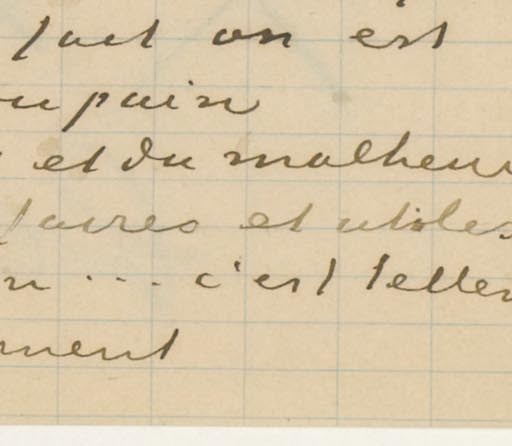 fact on est
pain
et du malheur
faires et utiles
n ... c'est teller
ment